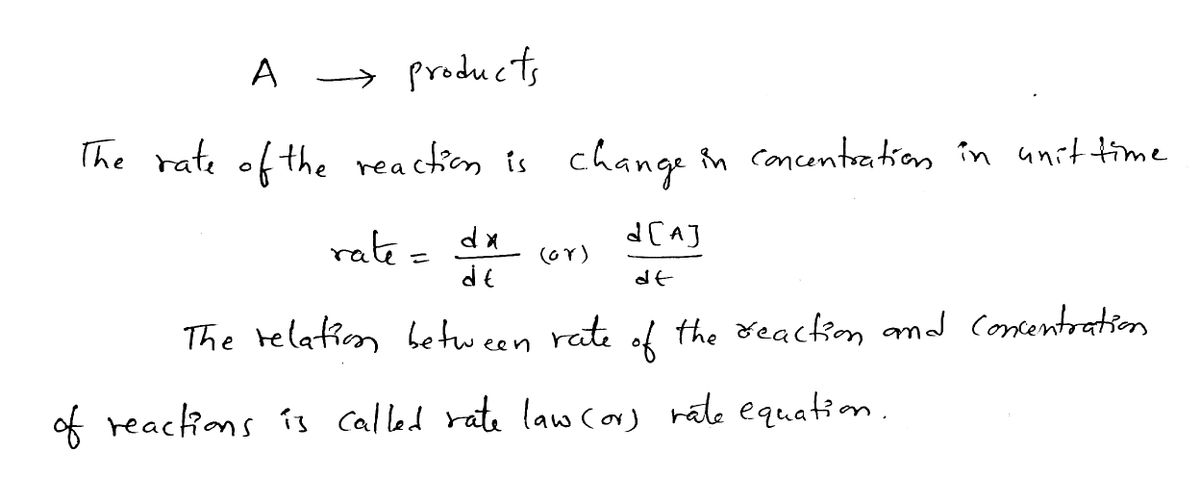 A → products
The rate of the reaction is change in concentration in unit time
rate = dx/dt (or) d[A]/dt
The relation between rate of the reaction and concentration
of reactions is called rate law (or) rate equation.